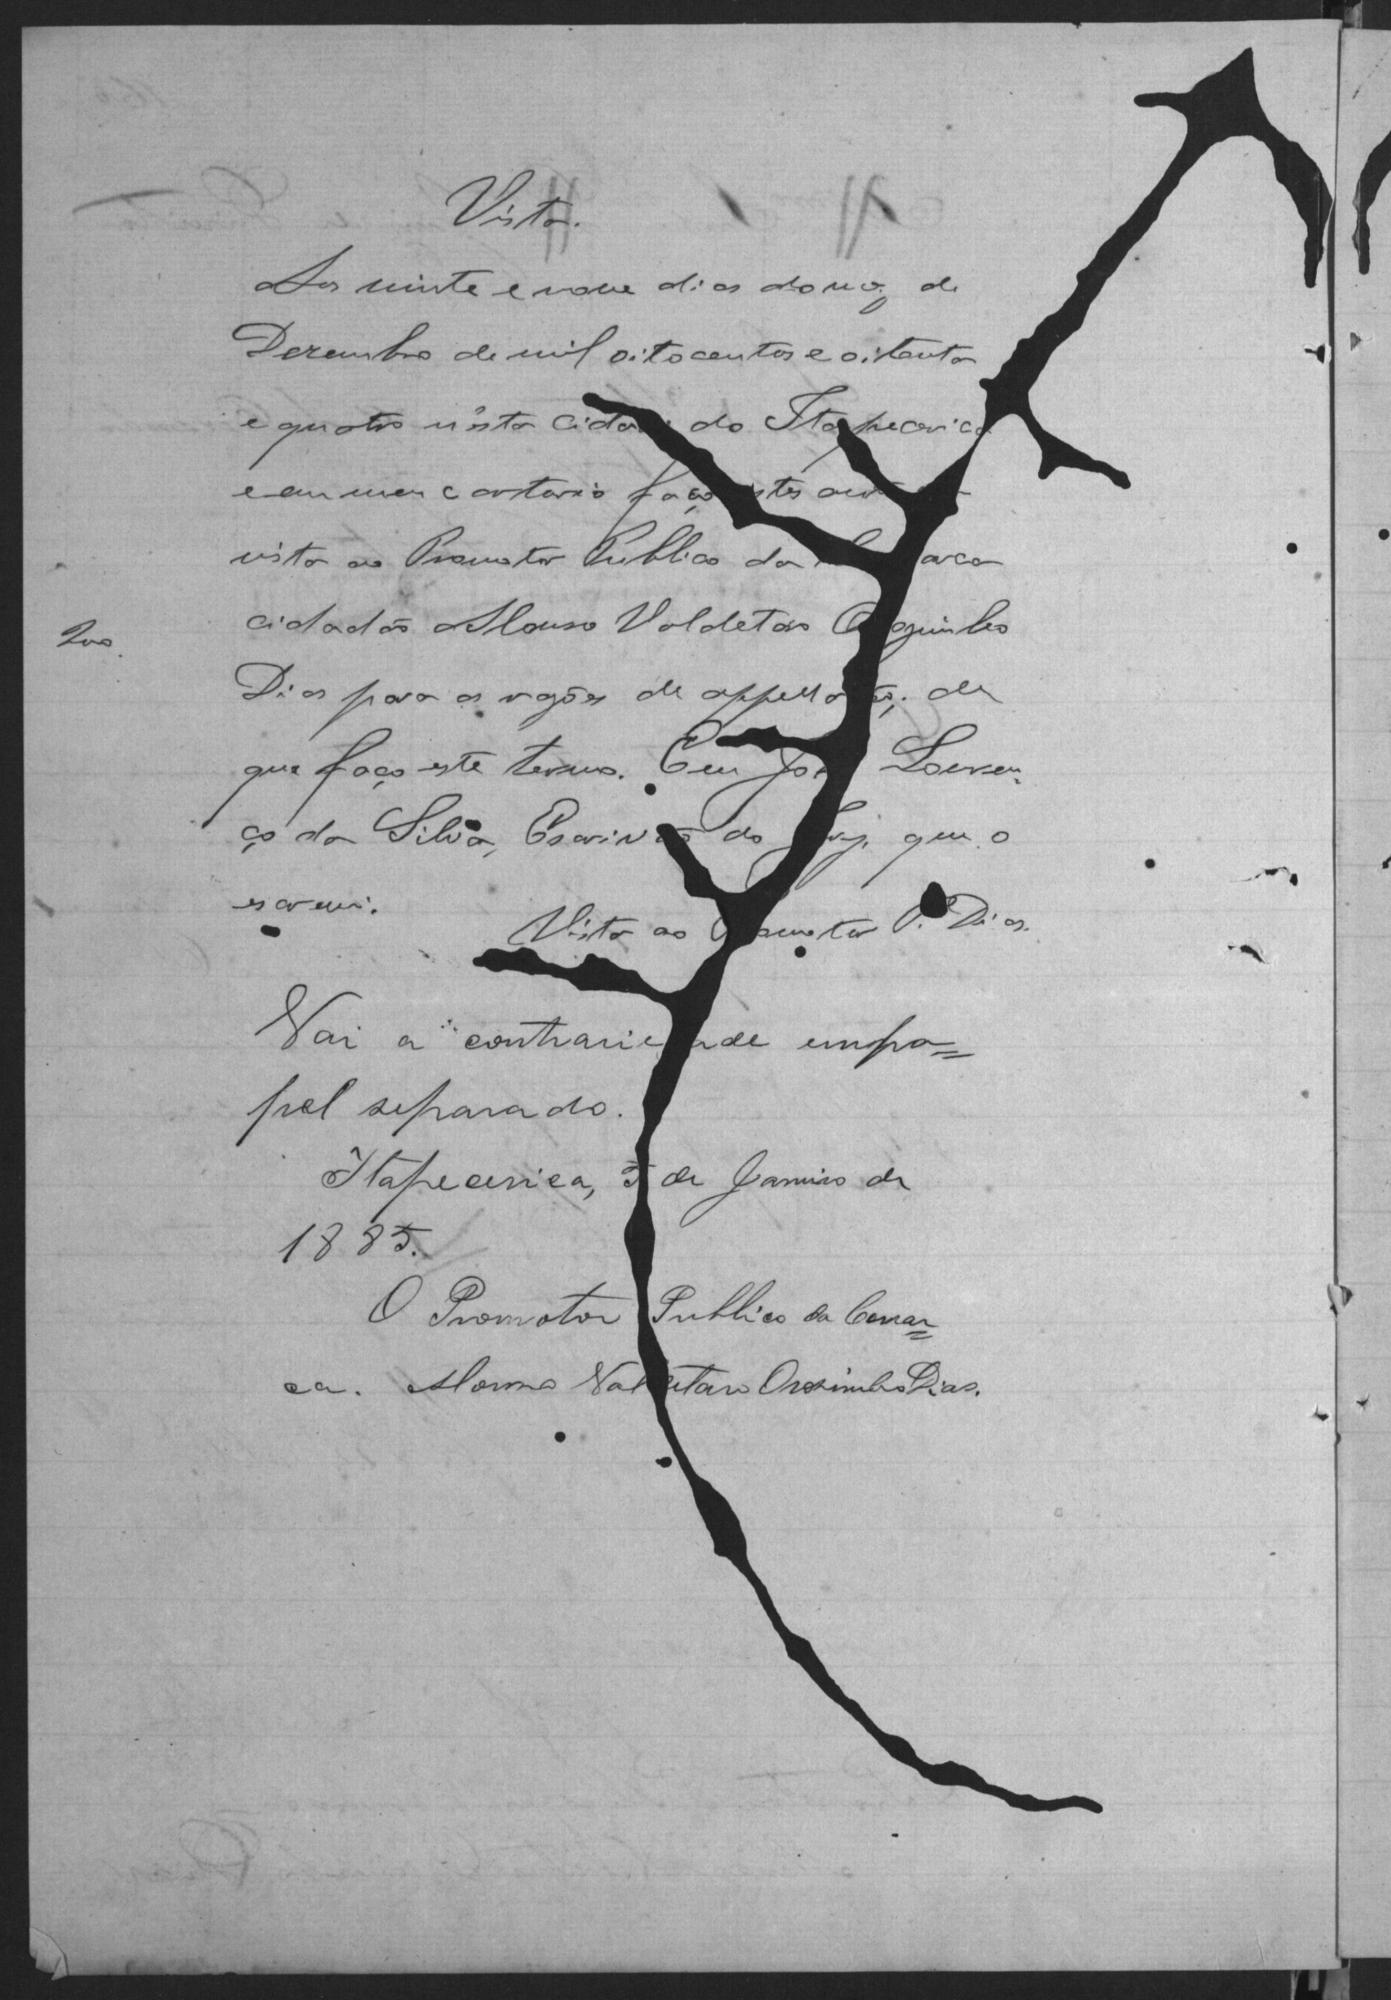 Vista.
Aos vinte e nove dias do mez de
Dezembro de mil oito centos e oitenta
e quatro n'esta cidade do Itapecerica
e em meu cartorio faço estes autos
vista ao Promotor Publico da Comarca
cidadão Alonso Valdetaro Orozimbo
200
Dias para as rasões de appellação; de
que faço este termo. Eu João Louren
ço da Silva, Escrivão do Jury, que o
escrevi.
Vista ao Promotor P. Dias.
Vai a contrariedade em pa=
pel separado.
Itapecerica, 5 de Janeiro de
1885.
O Promotor Publico da Comar=
ca. Valdetaro Orozimbo Dias.